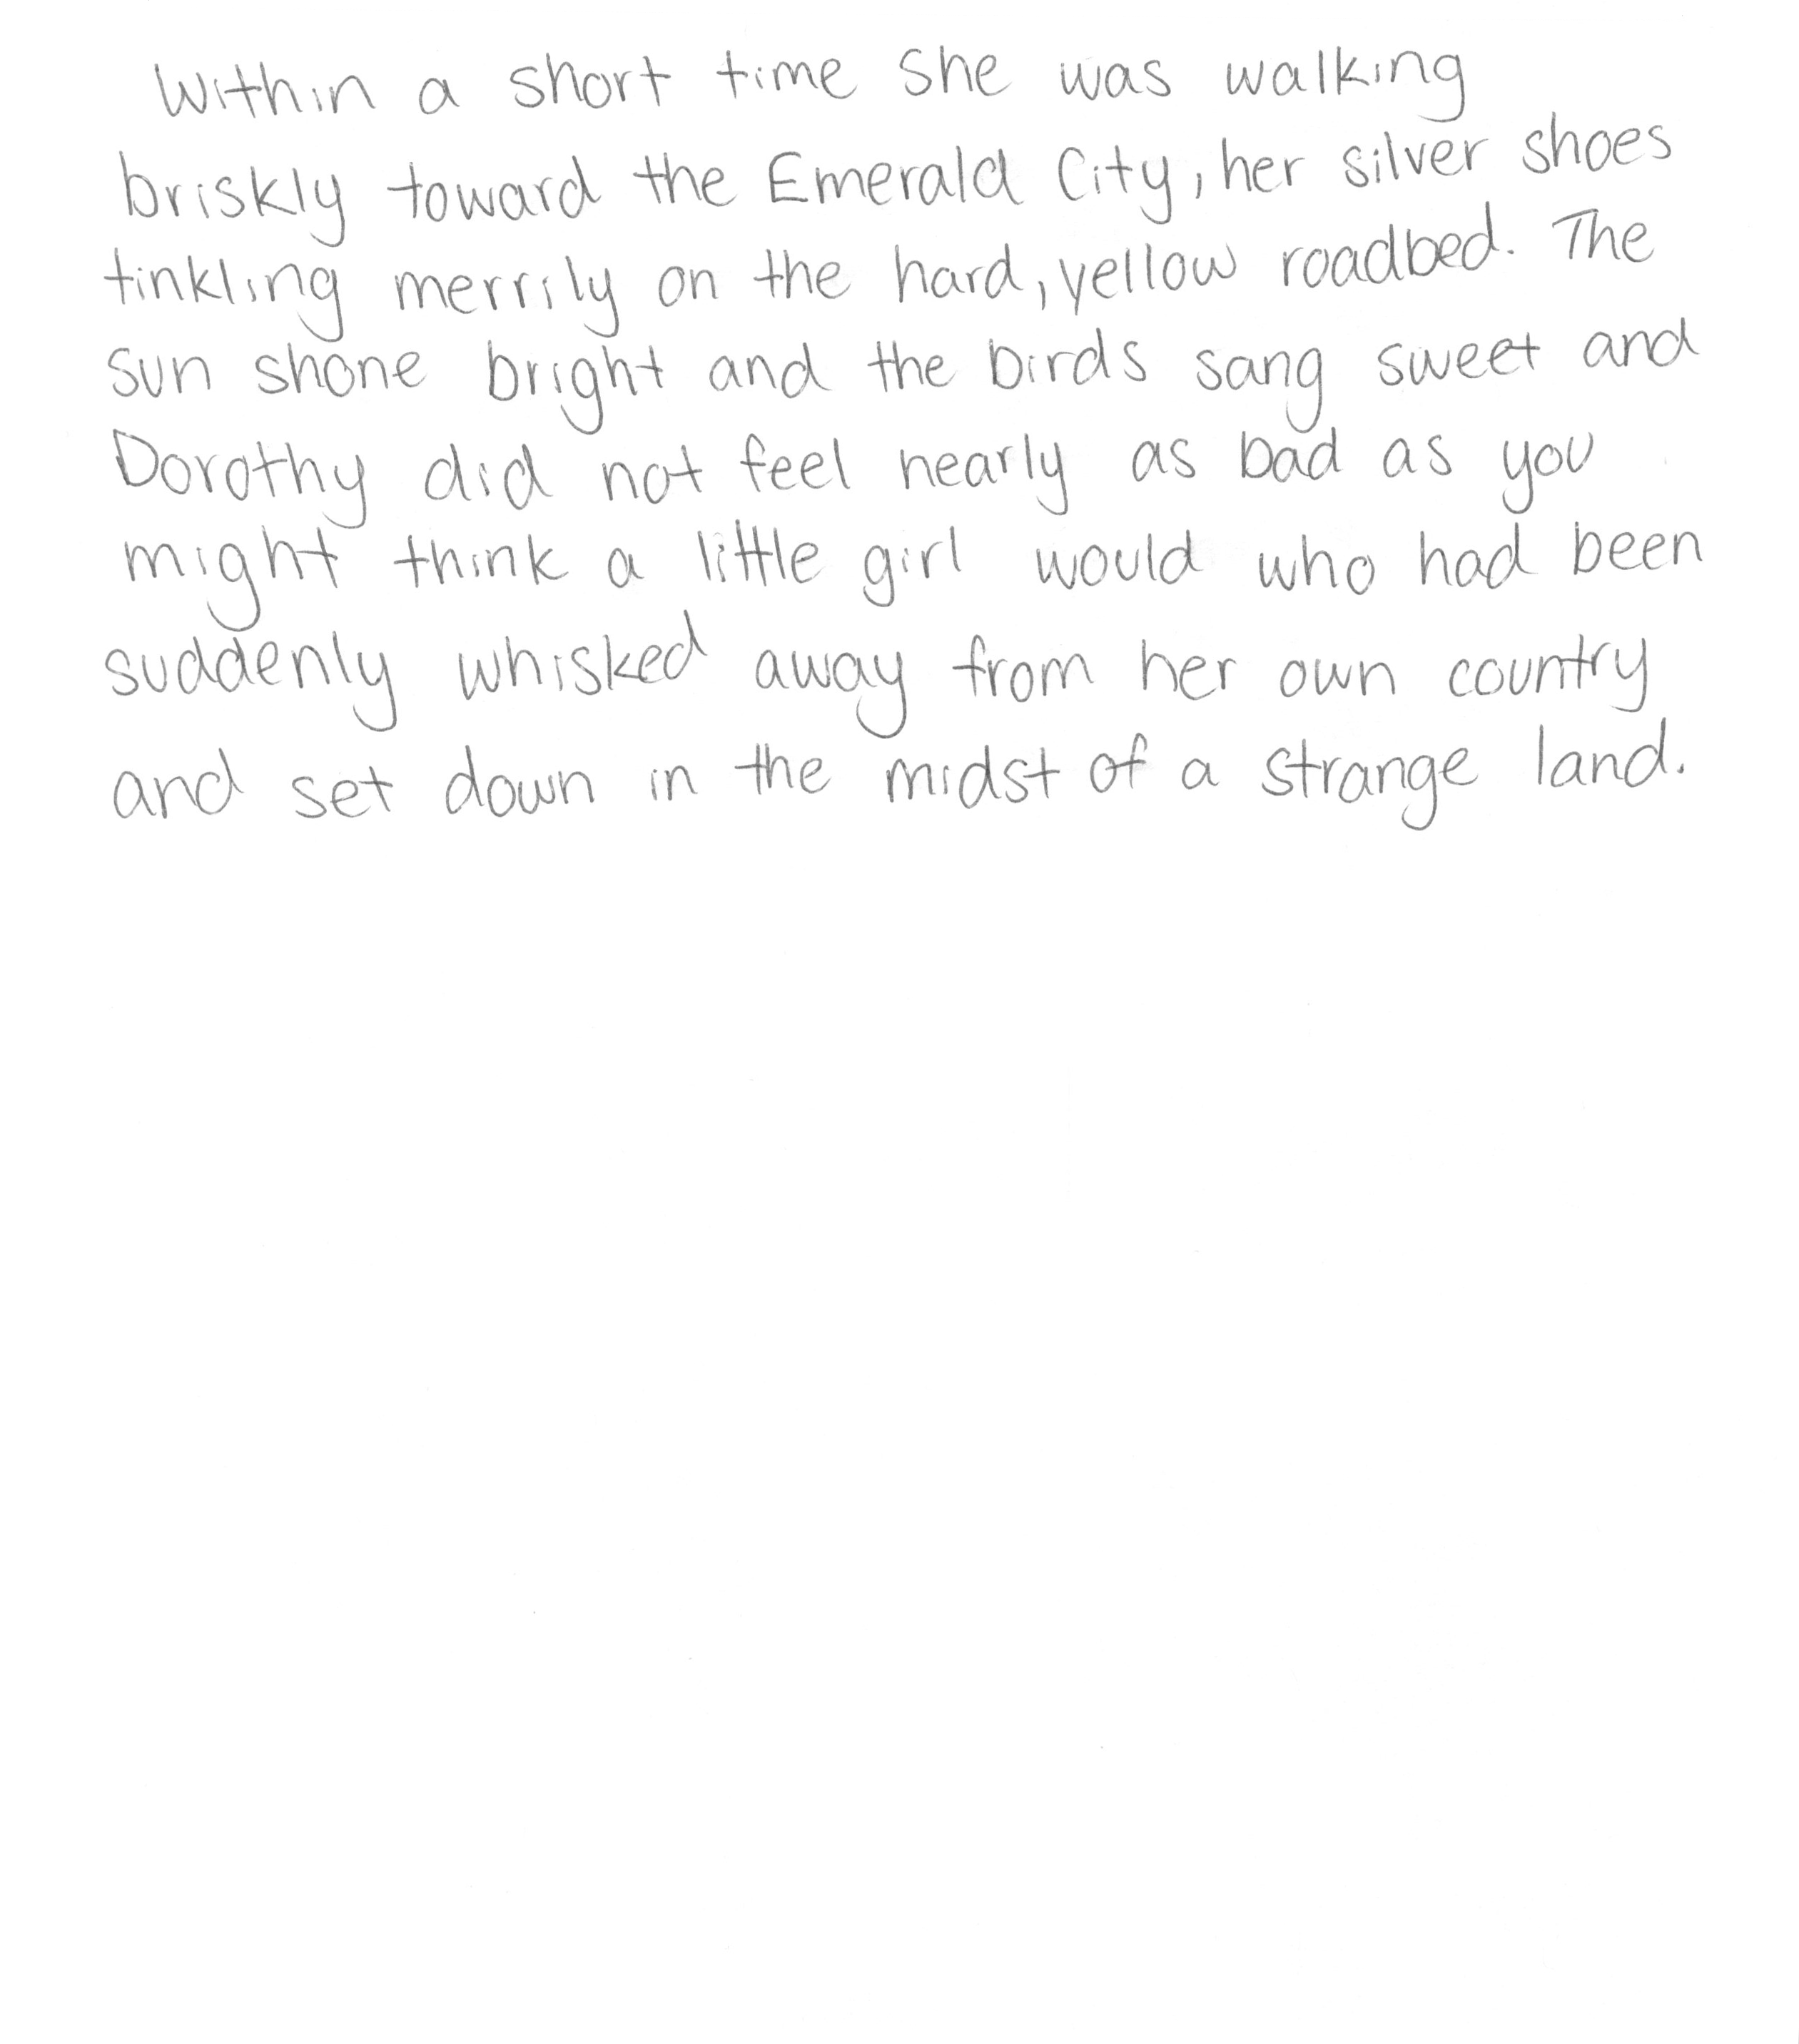 Within a short time she was walking
briskly toward the Emerald City, her silver shoes
tinkling merrily on the hard, yellow roadbed. The
sun shone bright and the birds sang sweet and
Dorothy did not feel nearly as bad as you
might think a little girl would who had been
suddenly whisked away from her own country
and set down in the midst of a strange land.